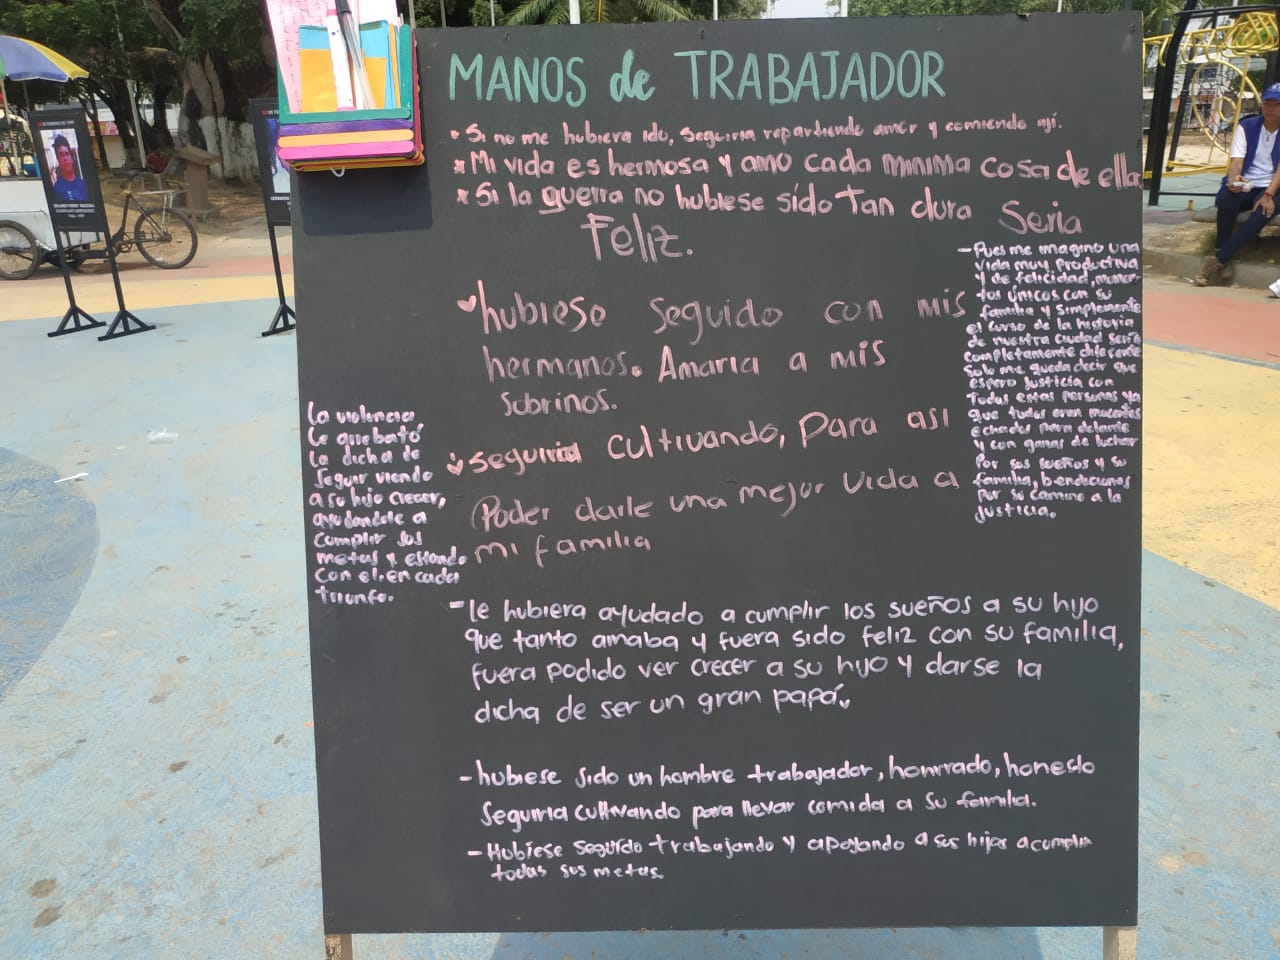 MANOS de TRABAJADOR
* Si no me hubiera ido, seguiria repartiendo amor y comiendo ají.
* Mi vida es hermosa y amo cada minima cosa de ella
* Si la guerra no hubiese sido tan dura Seria
Feliz.
hubiese seguido con mis
hermanos. Amaria a mis
sobrinos.
seguiria cultivando, Para asi
Poder darle una mejor vida a
mi familia
- Pues me imagino una
vida muy productiva
y de felicidad, momen-
tos únicos con su
familia y simplemente
el curso de la historia
de nuestra ciudad seria
completamente diferente
solo me queda decir que
espero justicia con
todas estas personas ya
que todos eran
echados para delante
y con ganas de luchar
Por sus sueños y su
familia, bendiciones
por su camino a la
justicia.
La violencia
le quebató
la dicha de
seguir viendo
a su hijo crecer,
ayudandole a
cumplir sus
metas y estando
con el, en cada
triunfo.
- le hubiera ayudado a cumplir los sueños a su hijo
que tanto amaba y fuera sido feliz con su familia,
fuera podido ver crecer a su hijo y darse la
dicha de ser un gran papá.
- hubiese sido un hombre trabajador, honrrado, honesto
seguiria cultivando para llevar comida a su familia.
- Hubiese seguido trabajando y apoyando a sus hijos a cumplir
todas sus metas.